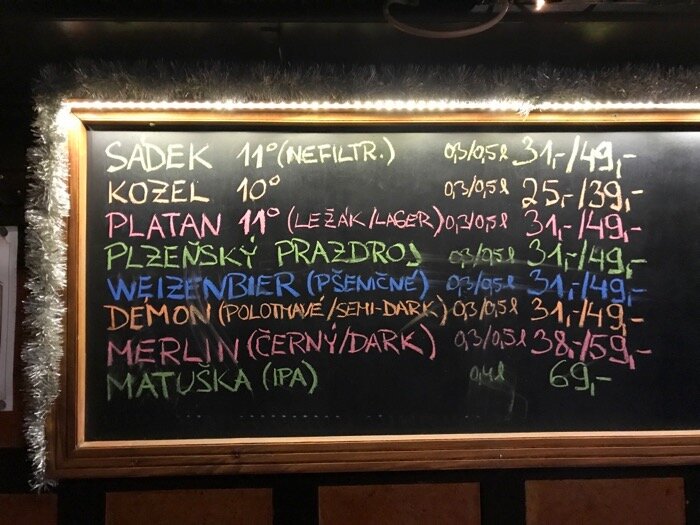 SÁDEK 11° (NEFILTR.) 0,3/0,5l 31,-/49,-
KOZEL 10° 0,3/0,5l 25,-/39,-
PLATAN 11° (LEŽÁK/LAGER) 0,3/0,5l 31,-/49,-
PLZEŇSKÝ PRAZDROJ 0,3/0,5l 31,-/49,-
WEIZENBIER (PŠENIČNÉ) 0,3/0,5l 31,-/49,-
DÉMON (POLOTMAVÉ/SEMI-DARK) 0,3/0,5l 31,-/49,-
MERLIN (ČERNÝ/DARK) 0,3/0,5l 38,-/59,-
MATUŠKA (IPA) 0,4l 69,-